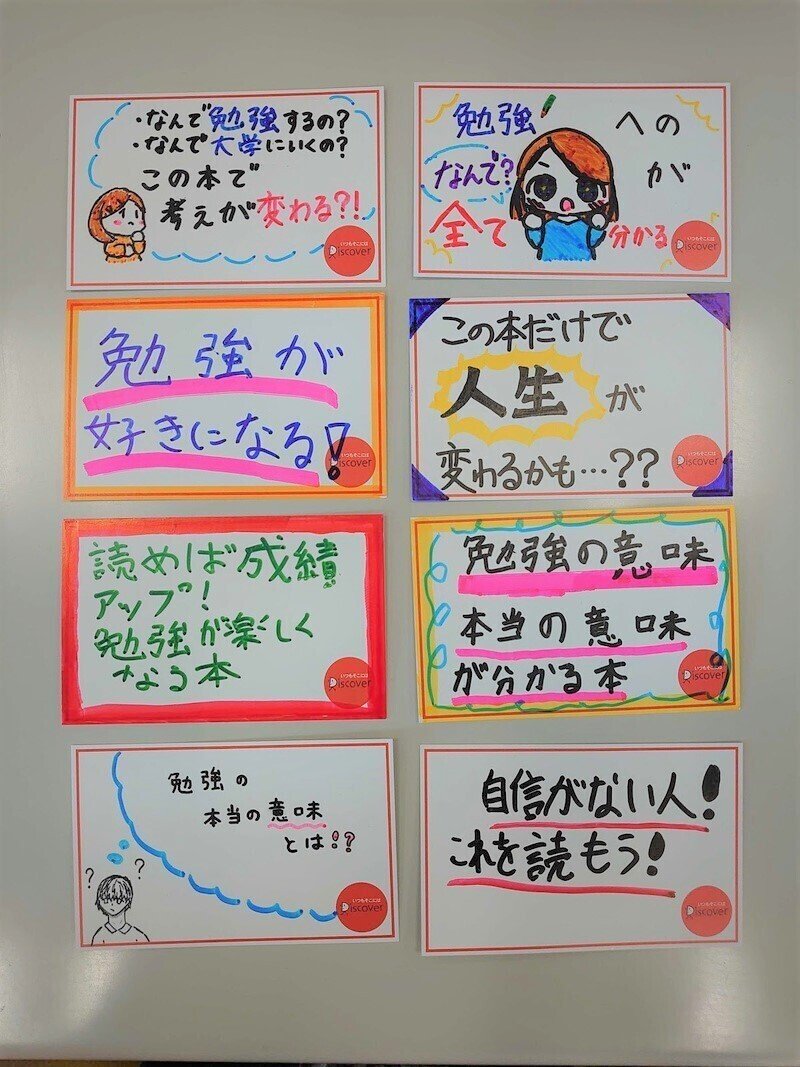 ・なんで勉強するの?
・なんで大学にいくの?
この本で
考えが変わる?!
いつもそこには
Discover
勉強への
なんで?が
全て分かる
いつもそこには
Discover
勉強が
好きになる!
いつもそこには
Discover
この本だけで
人生が
変わるかも…??
いつもそこには
Discover
読めば成績
アップ!
勉強が楽しく
なる本
いつもそこには
Discover
勉強の意味
本当の意味
が分かる本
いつもそこには
Discover
勉強の
本当の意味
とは!?
??
いつもそこには
Discover
自信がない人!
これを読もう!
いつもそこには
Discover